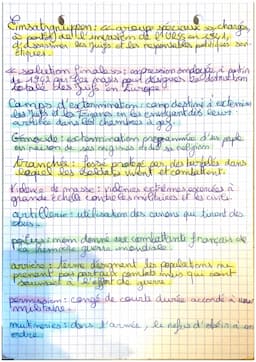 Einsatzgruppen : groupes spéciaux chargés
à partir de l'invasion de l'URSS en 1941,
d'assassiner les Juifs et les responsables politiques sovi-
étiques.
"solution finale" : expression employée à partir
de 1942 par les nazis pour désigner la destruction
totale des Juifs en Europe
Camps d'extermination : camp destiné à exterminer
les Juifs et les Tziganes en les dès leur
arrivée dans les chambres à gaz.
Génocide : extermination programmée d'un peuple
en raison de ses origines ou de sa religion.
tranchée : fossé protégé par des barbelés dans
lequel les soldats vivent et combattent.
Violence de masse : violences extrêmes exercées à
grande échelle contre les militaires et les civils.
artillerie : utilisation des canons qui tirent des
obus.
poilus : nom donné aux combattants français de
la première guerre mondiale.
arrière : terme désignant les populations ne
prenant pas part aux combats mais qui sont
soumises à l'effort de guerre
permission : congé de courte durée accordé à un
militaire.
mutineries : dans l'armée, le refus d'obéir à un
ordre.